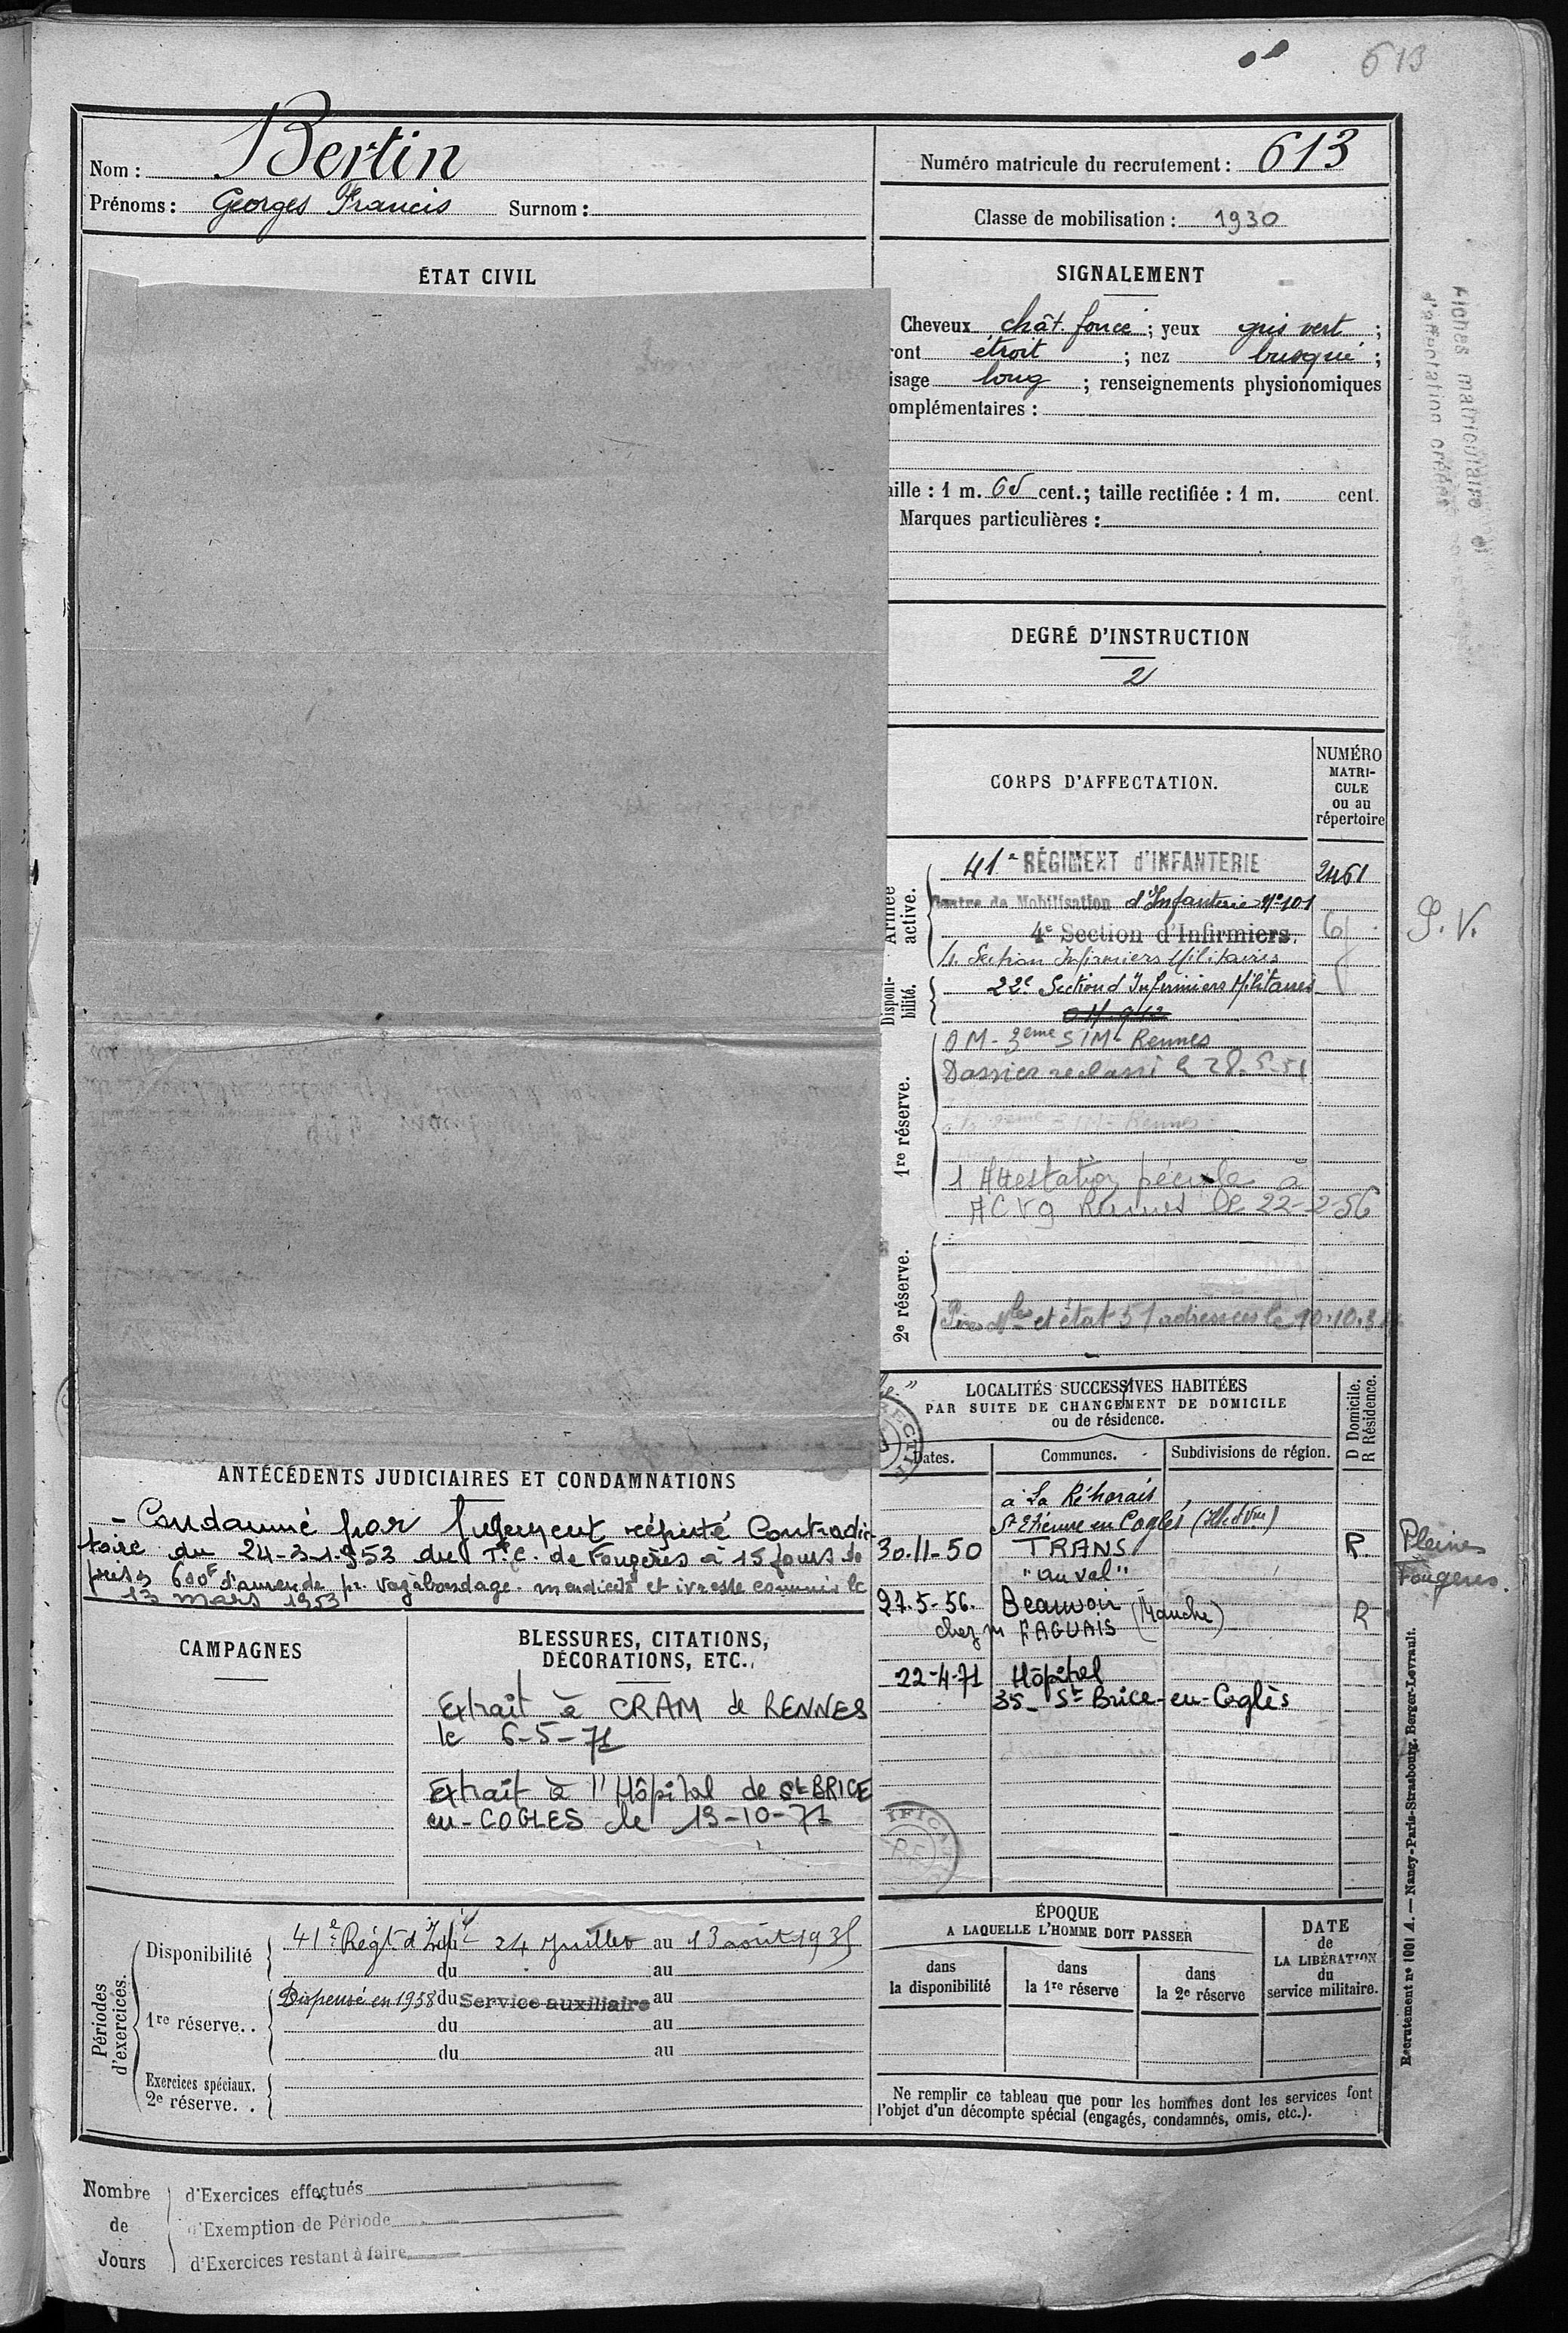 613
Nom : Bertin
Prénoms : Georges Francis Surnom :
Numéro matricule du recrutement : 613
Classe de mobilisation : 1930
ÉTAT CIVIL
SIGNALEMENT
Cheveux chât. foncé ; yeux gris vert ;
ront étroit ; nez busqué ;
isage long ; renseignements physionomiques
omplémentaires :
aille : 1 m. 65 cent.; taille rectifiée : 1 m. cent.
Marques particulières :
Fiches matriculaire et
d'affectation créées
DEGRÉ D'INSTRUCTION
2
CORPS D'AFFECTATION.
NUMÉRO
MATRI-
CULE
ou au
répertoire
Armée
active.
41e RÉGIMENT d'INFANTERIE 2461
Centre de Mobilisation d'Infanterie N° 101
4e Section d'Infirmiers.
Section Infirmiers Militaires
P. V.
Disponi-
bilité.
22e Section d'Infirmiers Militaires
1re réserve.
O M - 3eme S I M Rennes
Dossier reclassé le 28-5-51
1 Attestation pécule à
ACVG Rennes le 22-2-56
2e réserve.
et état 51 adressés le 10.10.
LOCALITÉS SUCCESSIVES HABITÉES
PAR SUITE DE CHANGEMENT DE DOMICILE
ou de résidence.
D Domicile.
R Résidence.
Dates. Communes. Subdivisions de région.
à La Réhorais
St Etienne en Cogles (Ille et Vne)
30-11-50 TRANS R. Pleines
"au val" Fougères.
27-5-56. Beauvoir (Manche) R
chez m FAGUAIS
22-4-71 Hôpital
35- St Brice-en-Coglès
ANTÉCÉDENTS JUDICIAIRES ET CONDAMNATIONS
- Condamné par Jugement réputé Contradic-
toire du 24-3-1953 du T.C. de Fougères à 15 jours de
prison 600F d'amende pr. vagabondage. mendicité et ivresse commis le
13 mars 1953
CAMPAGNES
BLESSURES, CITATIONS,
DÉCORATIONS, ETC.
Extrait à CRAM de RENNES
le 6-5-71
Extrait à l'Hôpital de St BRICE
en-COGLES le 19-10-71
Périodes
d'exercices.
Disponibilité
41e Régt. d'Infie du 24 Juillet au 13 août 1935
du au
1re réserve. .
Dispensé en 1938 du Service auxiliaire au
du au
du au
Exercices spéciaux.
2e réserve. .
ÉPOQUE
A LAQUELLE L'HOMME DOIT PASSER
dans
la disponibilité
dans
la 1re réserve
dans
la 2e réserve
DATE
de
LA LIBÉRATION
du
service militaire.
Ne remplir ce tableau que pour les hommes dont les services font
l'objet d'un décompte spécial (engagés, condamnés, omis, etc.).
Recrutement n° 1001 A. — Nancy-Paris-Strasbourg, Berger-Levrault.
Nombre
de
Jours
d'Exercices effectués
d'Exemption de Période
d'Exercices restant à faire